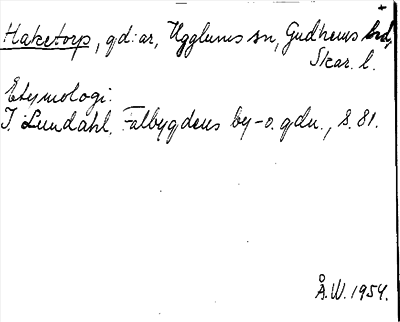 Haketorp, gd:ar, Ugglums sn, Gudhems hd,
Skar. l.
Etymologi:
I. Lundahl, Falbygdens by- o. gdn., s. 81.
Å.W. 1954.